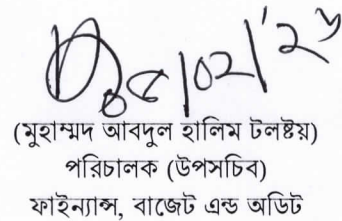 (মুহাম্মদ আবদুল হালিম টলষ্টয়)
পরিচালক (উপসচিব)
ফাইন্যান্স, বাজেট এন্ড অডিট